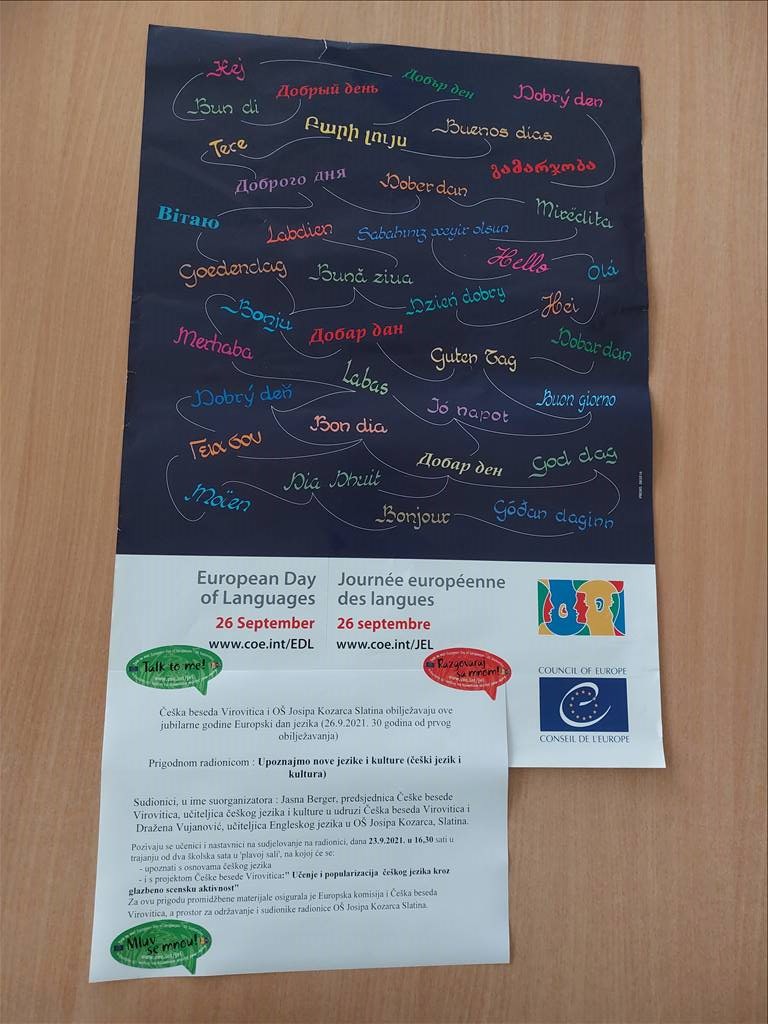 Hej
Добрый день
Добър ден
Dobrý den
Bun di
Բարի լույս
Buenos días
Tere
გამარჯობა
Доброго дня
Dober dan
Mirëdita
Вітаю
Labdien
Sabahınız xeyir olsun
Hello
Olá
Goedendag
Bună ziua
Dzień dobry
Hei
Bonju
Добар дан
Dobar dan
Merhaba
Guten Tag
Labas
Dobrý deň
Jó napot
Buon giorno
Bon dia
Γεια σου
Добар ден
God dag
Dia Dhuit
Moïen
Bonjour
Góðan daginn
European Day
of Languages
26 September
www.coe.int/EDL
Journée européenne
des langues
26 septembre
www.coe.int/JEL
Talk to me!
www.coe.int/jel
Razgovaraj
sa mnom!
www.coe.int/jel
COUNCIL OF EUROPE
CONSEIL DE L'EUROPE
Češka beseda Virovitica i OŠ Josipa Kozarca Slatina obilježavaju ove
jubilarne godine Europski dan jezika (26.9.2021. 30 godina od prvog
obilježavanja)
Prigodnom radionicom : Upoznajmo nove jezike i kulture (češki jezik i
kultura)
Sudionici, u ime suorganizatora : Jasna Berger, predsjednica Češke besede
Virovitica, učiteljica češkog jezika i kulture u udruzi Češka beseda Virovitica i
Dražena Vujanović, učiteljica Engleskog jezika u OŠ Josipa Kozarca, Slatina.
Pozivaju se učenici i nastavnici na sudjelovanje na radionici, dana 23.9.2021. u 16,30 sati u
trajanju od dva školska sata u 'plavoj sali', na kojoj će se:
- upoznati s osnovama češkog jezika
- i s projektom Češke besede Virovitica:" Učenje i popularizacija češkog jezika kroz
glazbeno scensku aktivnost"
Za ovu prigodu promidžbene materijale osigurala je Europska komisija i Češka beseda
Virovitica, a prostor za održavanje i sudionike radionice OŠ Josipa Kozarca Slatina.
Mluv
se mnou!
www.coe.int/jel